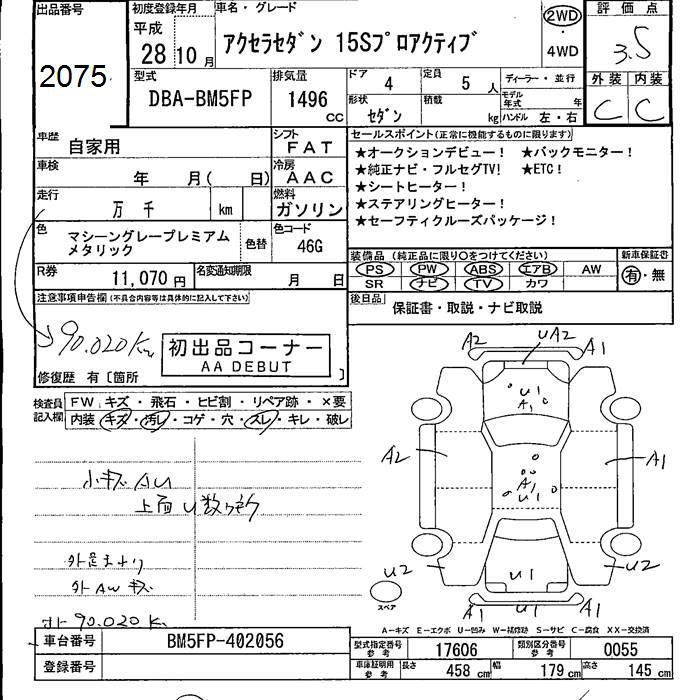 出品番号
2075
初度登録年月
平成
28年10月
車名・グレード
アクセラセダン 15Sプロアクティブ
2WD
・
4WD
評価点
3.5
外装 内装
C C
型式
DBA-BM5FP
排気量
1496
CC
ドア
4
定員
5人
形状
セダン
積載
kg
ディーラー・並行
モデル年式 年
ハンドル 左・右
車歴
自家用
シフト
FAT
車検
年 月( 日)
冷房
AAC
走行
万 千 km
燃料
ガソリン
色
マシーングレープレミアム
メタリック
色替
色コード
46G
R券
11,070円
名変通知期限
月 日
セールスポイント(正常に機能するものに限ります)
★オークションデビュー! ★バックモニター!
★純正ナビ・フルセグTV! ★ETC!
★シートヒーター!
★ステアリングヒーター!
★セーフティクルーズパッケージ!
装備品(純正品に限り○をつけてください)
PS PW ABS エアB AW
SR ナビ TV カワ
新車保証書
有・無
後日品
保証書・取説・ナビ取説
注意事項申告欄(不具合内容等は具体的に記入して下さい)
90.020Km
初出品コーナー
AA DEBUT
修復歴 有〔箇所 〕
検査員記入欄
FW キズ・飛石・ヒビ割・リペア跡・×要
内装 キズ・汚レ・コゲ・穴・スレ・キレ・破レ
小キズAU
上面U数ヶ所
外AWキズ
ホト90.020K
A2 UA2 A1
U1
A1
A2 A1
A1
U1
U2 U2
U1
A1 A1
スペア
A－キズ E－エクボ U－凹み W－補修跡 S－サビ C－腐食 XX－交換済
車台番号
BM5FP-402056
登録番号
型式指定番号 参考
17606
類別区分番号 参考
0055
車庫証明用 参考
長さ 458 cm 幅 179 cm 高さ 145 cm